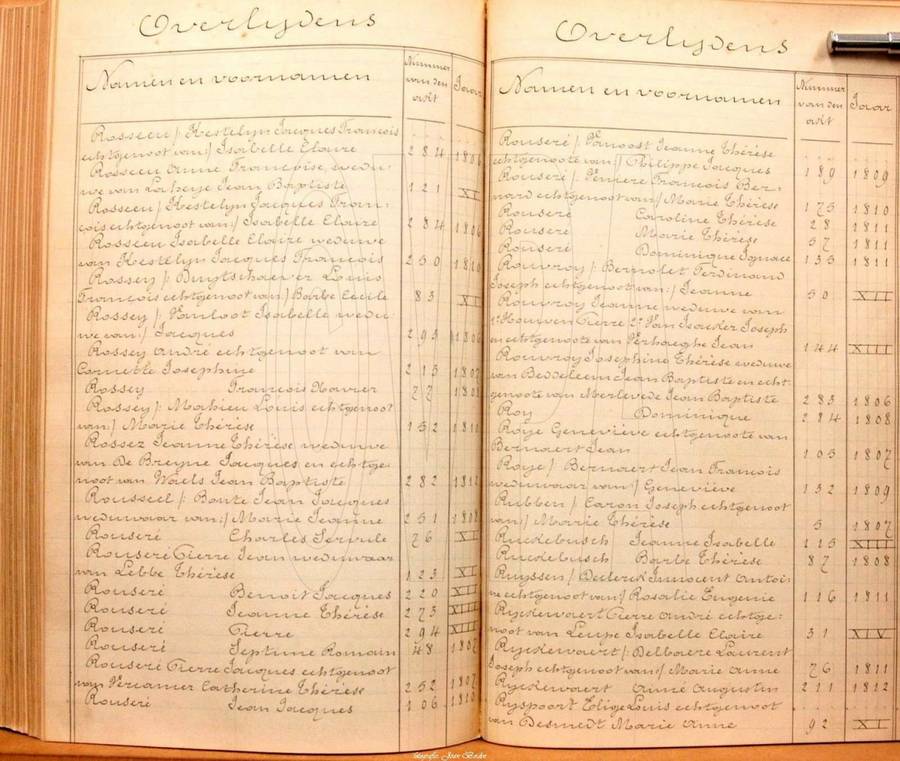 Overlijdens
Namen en voornamen
Nummer van den adit
Jaar
Rosseeu /: Kestelyn Jacques François
echtgenoot van:/ Isabelle Claire 284 1806
Rosseeu Anne Françoise wedu-
we van Laheye Jean Baptiste 121 XI
Rosseeu /: Kestelyn Jacques Fran-
çois echtgenoot van:/ Isabelle Claire 284 1806
Rosseeu Isabelle Claire weduwe
van Kestelyn Jacques François 250 1810
Rossey /: Buytschaever Louis
François echtgenoot van:/ Barbe Cécile 83 XI
Rossey /: Vanloot Isabelle wedu-
we van:/ Jacques 293 1806
Rossey André echtgenoot van
Cornette Josephine 215 1807
Rossey François Xavier 77 1808
Rossey /: Mahieu Louis echtgenoot
van:/ Marie Thérèse 152 1811
Rossez Jeanne Thérèse weduwe
van De Breyne Jacques en echtge-
noot van Waels Jean Baptiste 282 1812
Rousseel /: Bonte Jean Jacques
weduwaar van:/ Marie Jeanne 251 1808
Rouseré Charles Servule 76 XI
Rouseré Pierre Jean weduwaar
van Lebbe Thérèse 123 XI
Rouseré Benoit Jacques 220 XII
Rouseré Jeanne Thérèse 273 XIII
Rouseré Pierre 294 XIII
Rouseré Septune Romain 48 1807
Rouseré Pierre Jacques echtgenoot
van Vercamer Catherine Thérèse 252 1807
Rouseré Jean Jacques 106 1810
Overlydens
Namen en voornamen
Nummer van den adit
Jaar
Rouseré /: Vanoost Jeanne Thérèse
echtgenoote van:/ Philippe Jacques 189 1809
Rouseré /: Veniere François Ber-
nard echtgenoot van:/ Marie Thérèse 175 1810
Rouseré Caroline Thérèse 28 1811
Rouseré Marie Thérèse 57 1811
Rouseré Dominique Ignace 135 1811
Rouvroy /: Bernolet Ferdinand
Joseph echtgenoot van:/ Jeanne 50 XII
Rouvroy Jeanne weduwe van
1° Houven Pierre 2° Van Isacker Joseph
en echtgenoote van Verhaeghe Jean 144 XIII
Rouvroy Josephine Thérèse weduwe
van Beddeleem Jean Baptiste en echt-
genoote van Merlevede Jean Baptiste 283 1806
Roy Dominique 284 1808
Roye Geneviève echtgenoote van
Bernaert Jean 103 1807
Roye /: Bernaert Jean François
weduwaar van:/ Geneviève 132 1809
Rubben /: Caron Joseph echtgenoot
van:/ Marie Thérèse 5 1807
Ruckebusch Jeanne Isabelle 115 XIII
Ruckebusch Barbe Thérèse 87 1808
Ruyssen /: Declerck Innocent Antoi-
ne echtgenoot van:/ Rosalie Eugenie 116 1811
Ryckewaert Pierre André echtge-
noot van Leupe Isabelle Claire 31 XIV
Ryckewaert /: Delbaere Laurent
Joseph echtgenoot van:/ Marie Anne 76 1811
Ryckewaert Aimé Augustin 211 1812
Ryspoort Elige Louis echtgenoot
van Desmedt Marie Anne 92 XI